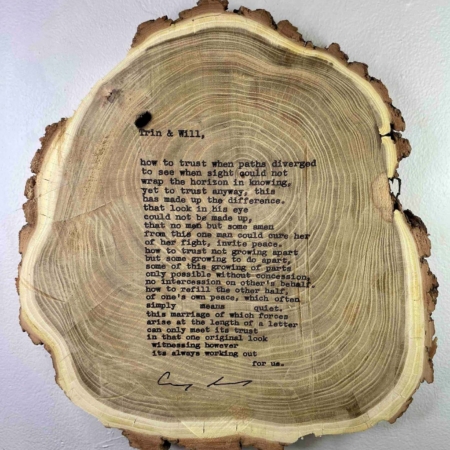 Trin & Will,
how to trust when paths diverged
to see when sight could not
wrap the horizon in knowing,
yet to trust anyway, this
has made up the difference.
that look in his eye
could not be made up,
that no man but some amen
from this one man could cure her
of her fight, invite peace.
how to trust not growing apart
but some growing to do apart,
some of this growing of parts
only possible without concession,
no intercession on other's behalf.
how to refill the other half,
of one's own peace, which often
simply means quiet.
this marriage of which forces
arise at the length of a letter
can only meet its trust
in that one original look
witnessing however
its always working out
for us.